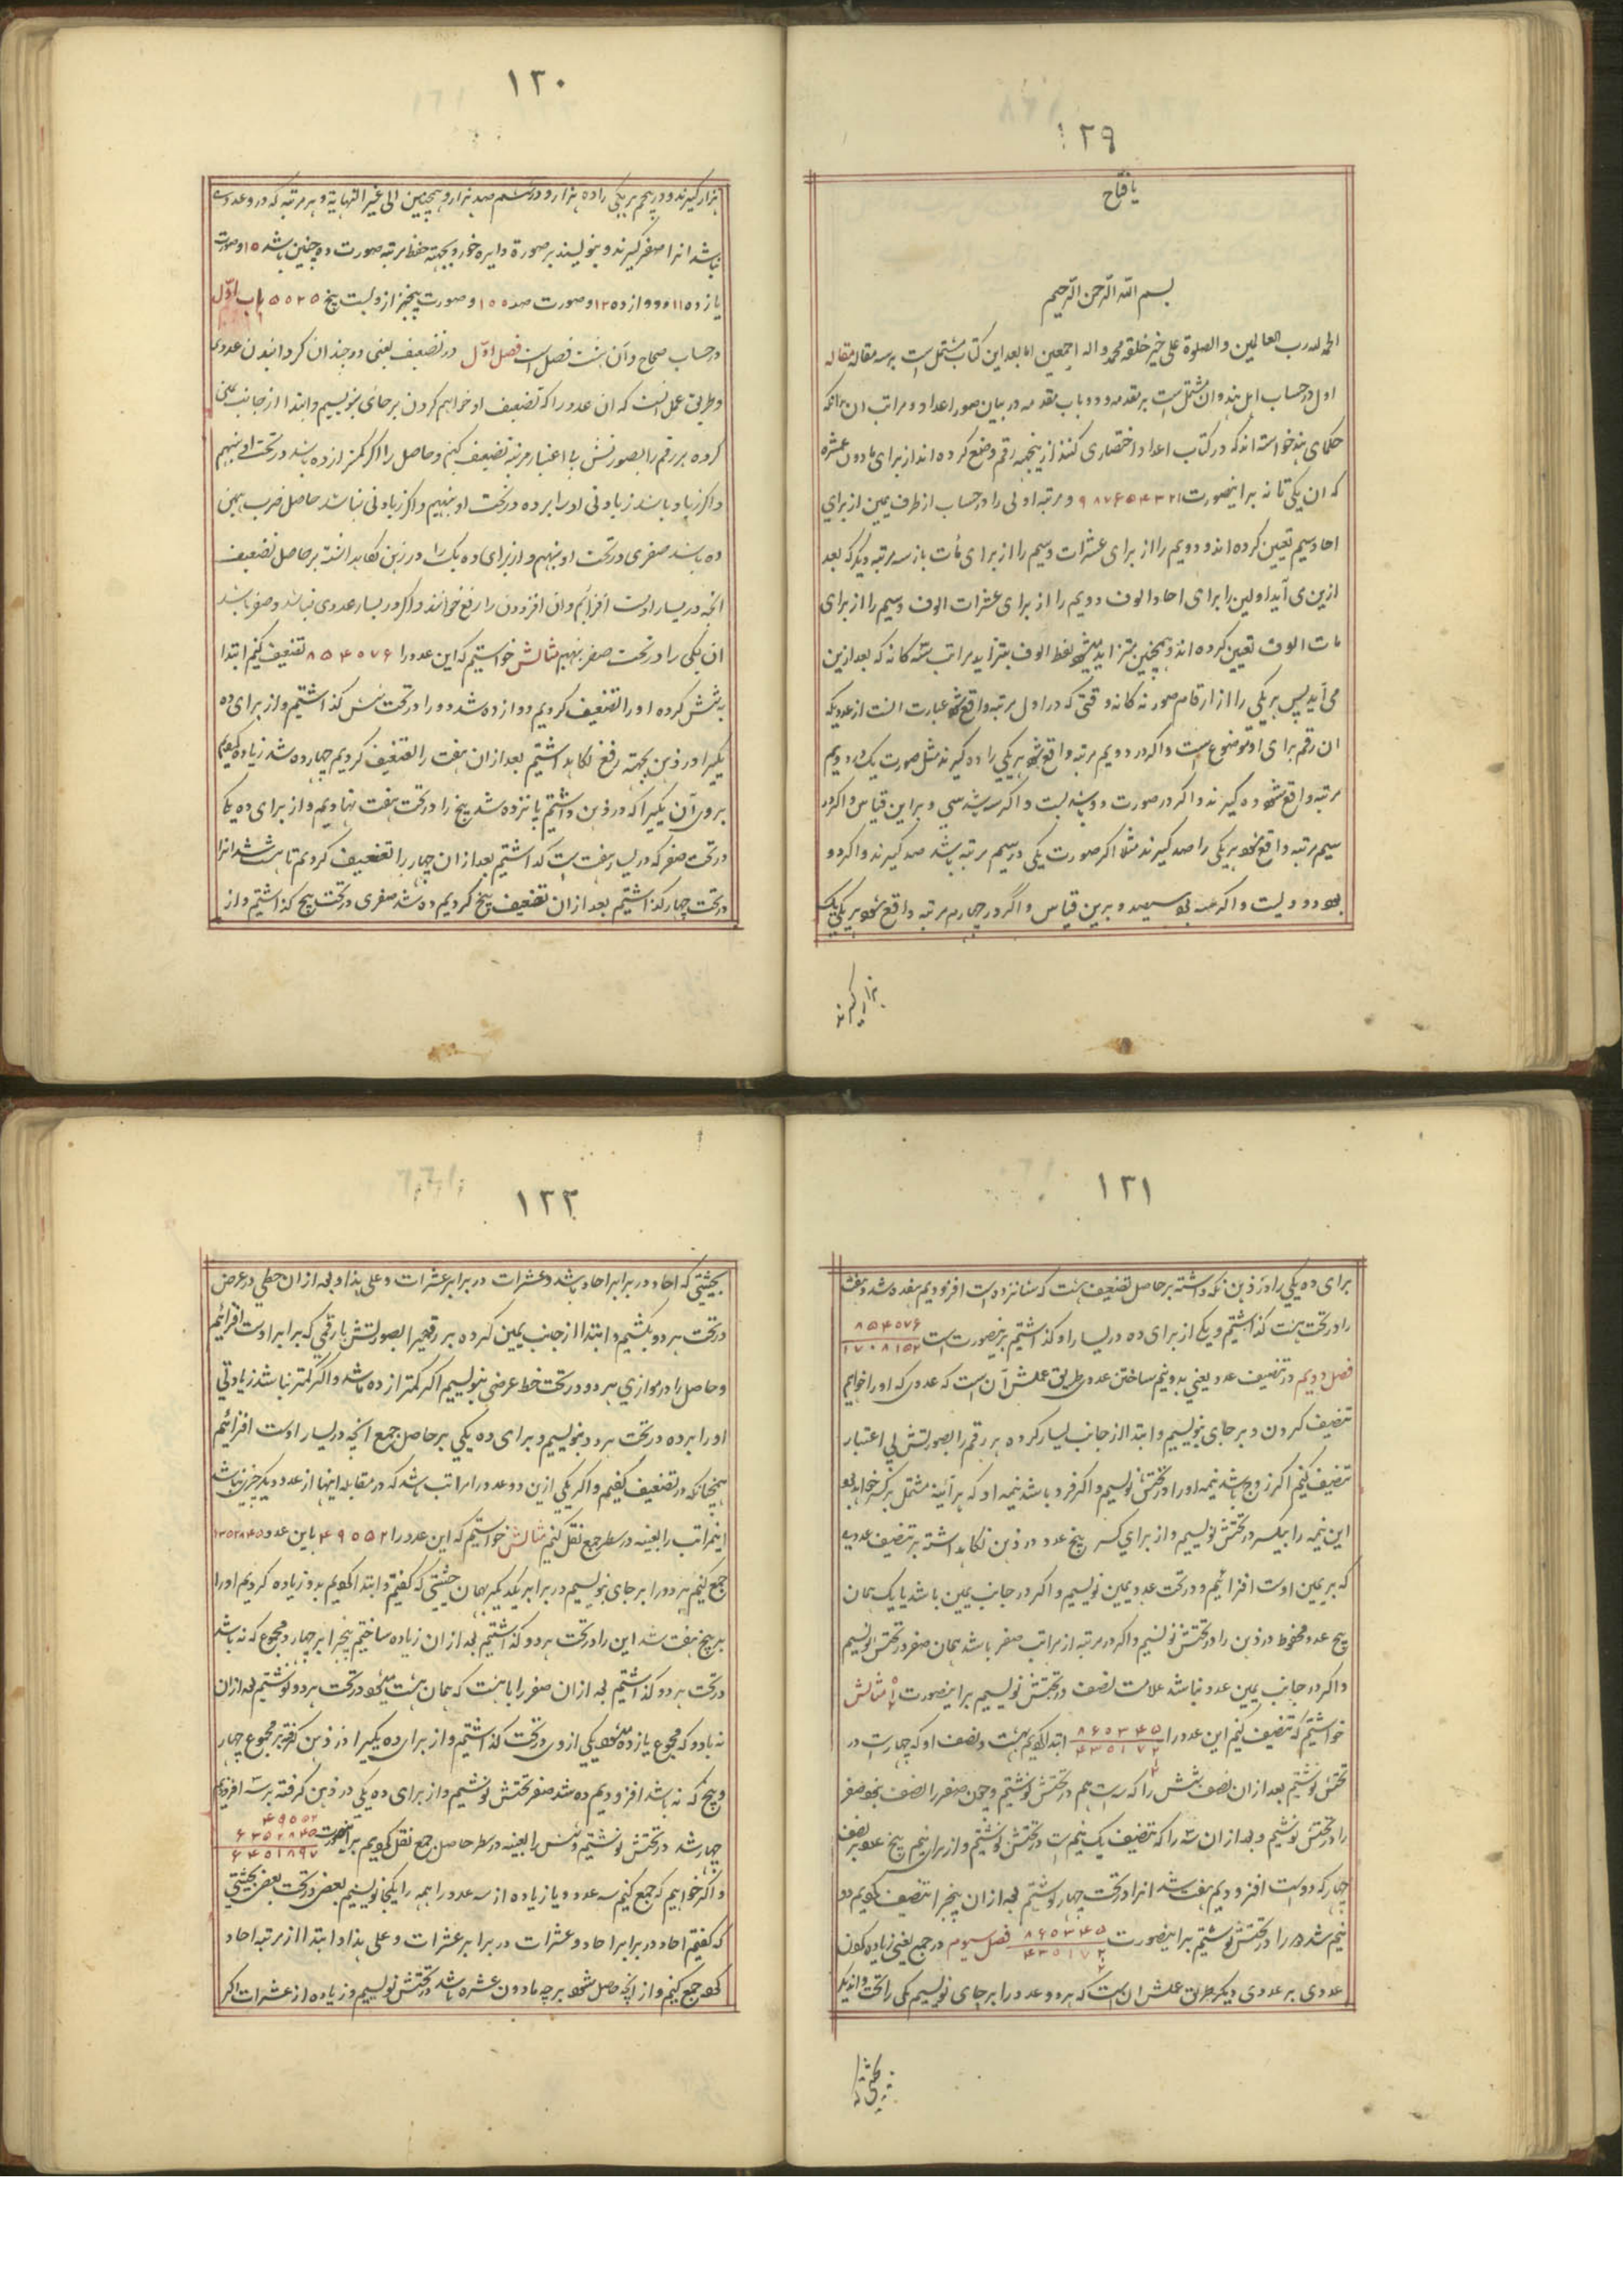 ١٢٩
یا فتاح
بسم الله الرحمن الرحیم
الحمد لله رب العالمین والصلوة علی خیر خلقه محمد واله اجمعین اما بعد این کتاب مشتمل است بر سه مقاله مقاله
اول در حساب اهل هند وان مشتمل است بر مقدمه و دو باب مقدمه در بیان صور اعداد و مراتب ان بدانکه
حکمای هند خواسته اند که در کتاب اعداد اختصاری کنند از ینجهه نه رقم وضع کرده اند از برای مادون عشره
که ان یکی تا نه براینصورت ۱ ۲ ۳ ۴ ۵ ۶ ۷ ۸ ۹ و مرتبه اولی را در حساب از طرف یمین از برای
احاد سیم تعیین کرده اند و دویم را از برای عشرات و سیم را از برای مات باز سه مرتبه دیگر که بعد
ازین می آید اولین را برای احاد الوف و دویم را از برای عشرات الوف و سیم را از برای
مات الوف تعیین کرده اند و همچنین بتزاید میشود لفظ الوف بتزاید مراتب سه کانه که بعد ازین
می آید پس هر یکی را از ارقام صور نه کانه وقتی که در اول مرتبه واقع شود عبارت است از عددیکه
ان رقم برای او موضوع است و اکر در دویم مرتبه واقع شود هر یکی را ده کیرند مثل صورت یک در دویم
مرتبه واقع شود ده کیرند و اکر در صورت دو باشد بیست و اکر سه باشد سی و براین قیاس و اکر در
سیم مرتبه واقع شود هر یکی را صد کیرند مثلا اکر صورت یکی در سیم مرتبه باشد صد کیرند و اکر دو
بود دویست و اکر سه بود سیصد و برین قیاس و اگر در چهارم مرتبه واقع شود هر یکی یک
هزار کیرند
١٣٠
هزار کیرند و در پنجم هر یکی را ده هزار و در ششم صد هزار و همچنین الی غیر النهایة و هر مرتبه که درو عددی
نباشد انرا صفر کیرند و بنویسند بر صورة دایره خورد بجهته حفظ مرتبه صورت ده چنین باشد ۱۰ و صورت
یازده ۱۱ و دوازده ۱۲ و صورت صد ۱۰۰ و صورت پنجهزار و بیست پنج ۵۰۲۵ باب اول
در حساب صحاح و آن هشت فصل است فصل اول در تضعیف یعنی دوچندان کردانیدن عددی
و طریق عمل انست که ان عدد را که تضعیف او خواهیم کردن بر جائی بنویسیم و ابتدا از جانب یمین
کرده هر رقم را بصورتش بی اعتبار مرتبه تضعیف کنیم و حاصل را اکر کمتر از ده باشد در تحت او بنهیم
و اکر زیاد باشد زیادتی او را بر ده در تحت او بنهیم و اکر زیادتی نباشد حاصل ضرب همین
ده باشد صفری در تحت او بنهیم و از برای ده یک را در ذهن نکاه داشته بر حاصل تضعیف
انچه در یسار اوست افزائیم و ان افزودن را رفع خوانند و اکر در یسار عددی نباشد و صفر باشد
ان یکی را در تحت صفر بنهیم مثالش خواستیم که این عدد را ۸۵۴۰۷۶ تضعیف کنیم ابتدا
به شش کرده او را تضعیف کردیم دوازده شد دو را در تحت شش کذاشتیم و از برای ده
یکیرا در ذهن بجهته رفع نکاه داشتیم بعد از ان هفت را تضعیف کردیم چهارده شد زیاده کردیم
بروی آن یکیرا که در ذهن داشتیم پانزده شد پنج را در تحت هفت نهادیم و از برای ده یک
در تحت صفر که در یسار هفت است کذاشتیم بعد از ان چهار را تضعیف کردیم تا هشت شد انرا
در تحت چهار کذاشتیم بعد از ان تضعیف پنج کردیم ده شد صفری در تحت پنج کذاشتیم و از
١٣١
برای ده یکی را در ذهن نکه داشته بر حاصل تضعیف هشت که شانزده است افزودیم هفده شد هفت
را در تحت هشت کذاشتیم و یکی از برای ده در یسار او کذاشتیم برینصورت است ۸۵۴۰۷۶
۱۷۰۸۱۵۲
فصل دویم در تنصیف عدد یعنی بدونیم ساختن عددی طریق عملش آن است که عددی که او را خواهیم
تنصیف کردن و بر جای بنویسیم و ابتدا از جانب یسار کرده هر رقم را بصورتش بی اعتبار
تنصیف کنیم اکر زوج باشد نیمه او را در تحتش نویسیم و اکر فرد باشد نیمه او که هر آئینه مشتمل بر کسر خواهد بود
این نیمه را بیکسر در تحتش نویسیم و از برای کسر پنج عدد در ذهن نکاه داشته بر تنصیف عددی
که بر یمین اوست افزائیم و در تحت عدد یمین نویسیم و اکر در جانب یمین باشد یا یک همان
پنج عدد محفوظ در ذهن را در تحتش نویسیم و اکر در مرتبه از مراتب صفر باشد همان صفر در تحتش نویسیم
و اکر در جانب یمین عدد نباشد علامت نصف در تحتش نویسیم براینصورت مثالش
خواستیم که تنصیف کنیم این عدد را ۸۶۰۳۴۵ ابتدا کردیم بهشت و نصف او که چهار است در
۴۳۰۱۷۲
تحتش نوشتیم بعد از ان نصف شش را که سه است هم در تحتش نوشتیم و چون صفر را نصف نبود صفر
را در تحتش نوشتیم و بعد از ان سه را که تنصیف یک و نیم است در تحتش نوشتیم و از برای نیم پنج عدد بر نصف
چهار که دو است افزودیم هفت شد انرا در تحت چهار نوشتیم بعد از ان پنجرا تنصیف کردیم دو
نیم شد دو را در تحتش نوشتیم براینصورت ۸۶۰۳۴۵ فصل سیوم در جمع یعنی زیاده کردن
۴۳۰۱۷۲
عددی بر عددی دیگر طریق عملش ان است که هر دو عدد را بر جای نویسیم یکی را تحت دیگر
بحیثیتی که
١٣٢
بحیثیتی که احاد در برابر احاد باشد و عشرات در برابر عشرات و علی هذا و بعد از ان خطی در عرض
در تحت هر دو بکشیم و ابتدا از جانب یمین کرده هر رقمیرا بصورتش با رقمی که برابر اوست افزائیم
و حاصل را در موازی هر دو در تحت خط عرضی بنویسیم اگر کمتر از ده باشد و اگر کمتر نباشد زیادتی
او را بر ده در تحت هر دو بنویسیم و برای ده یکی بر حاصل جمع انچه در یسار اوست افزائیم
همچنانکه در تضعیف کفتیم و اکر یکی ازین دو عدد را مراتب باشد که در مقابله اینها از عدد دیگر چیزی نباشد
اینمراتب را بعینه در سطر جمع نقل کنیم مثالش خواستیم که این عدد را ۴۹۰۵۲ باین عدد ۶۳۵۲۸۴۵
جمع کنیم هر دو را بر جای بنویسیم در برابر یکدیکر بهمان حیثیتی که کفتیم و ابتدا کردیم بدو زیاده کردیم او را
بر پنج هفت شد این را در تحت هر دو کذاشتیم بعد از ان زیاده ساختیم پنجرا بر چهار مجموع که نه باشد
در تحت هر دو کذاشتیم بعد از ان صفر را با هشت که همان هشت میشود در تحت هر دو نوشتیم بعد از ان
نه با دو که مجموع یازده میشود یکی ازوی در تحت کذاشتیم و از برای ده یکیرا در ذهن کرفته بر مجموع چهار
و پنج که نه باشد افزودیم ده شد صفر تحتش نوشتیم و از برای ده یکی در ذهن کرفته بر سه افزودیم
چهار شد در تحتش نوشتیم و شش را بعینه در سطر حاصل جمع نقل کردیم براینصورت ۴۹۰۵۲
۶۳۵۲۸۴۵
۶۴۰۱۸۹۷
و اکر خواهیم که جمع کنیم سه عدد و یا زیاده از سه عدد را همه را یکجا نویسیم بعضی در تحت بعض بحیثیتی
که کفتیم احاد در برابر احاد و عشرات در برابر عشرات و علی هذا و ابتدا از مرتبه احاد
کرده جمع کنیم و از انچه حاصل شود هر چه مادون عشره باشد در تحتش نویسیم و زیاده از عشرات اکر